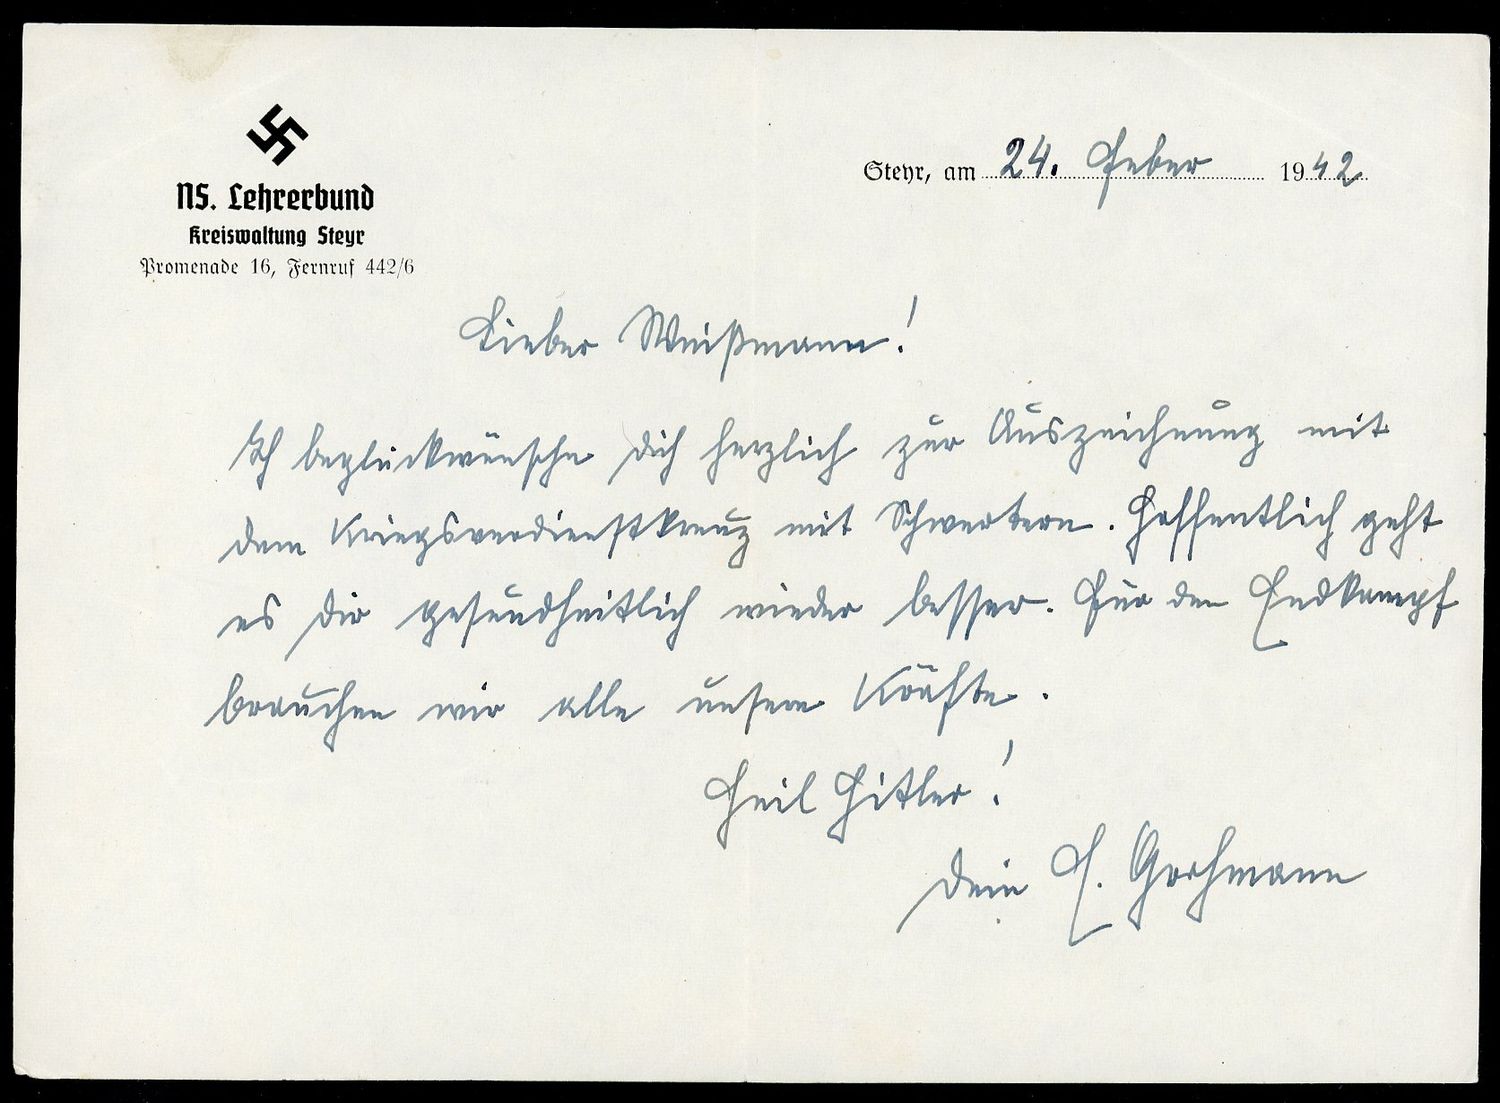 NS. Lehrerbund
Kreiswaltung Steyr
Promenade 16, Fernruf 442/6
Steyr, am 24. Feber 1942.
Lieber Weißmann!
Ich beglückwünsche dich herzlich zur Auszeichnung mit
dem Kriegsverdienstkreuz mit Schwertern. Hoffentlich geht
es dir gesundheitlich wieder besser. Für den Endkampf
brauchen wir alle unsere Kräfte.
Heil Hitler!
Dein